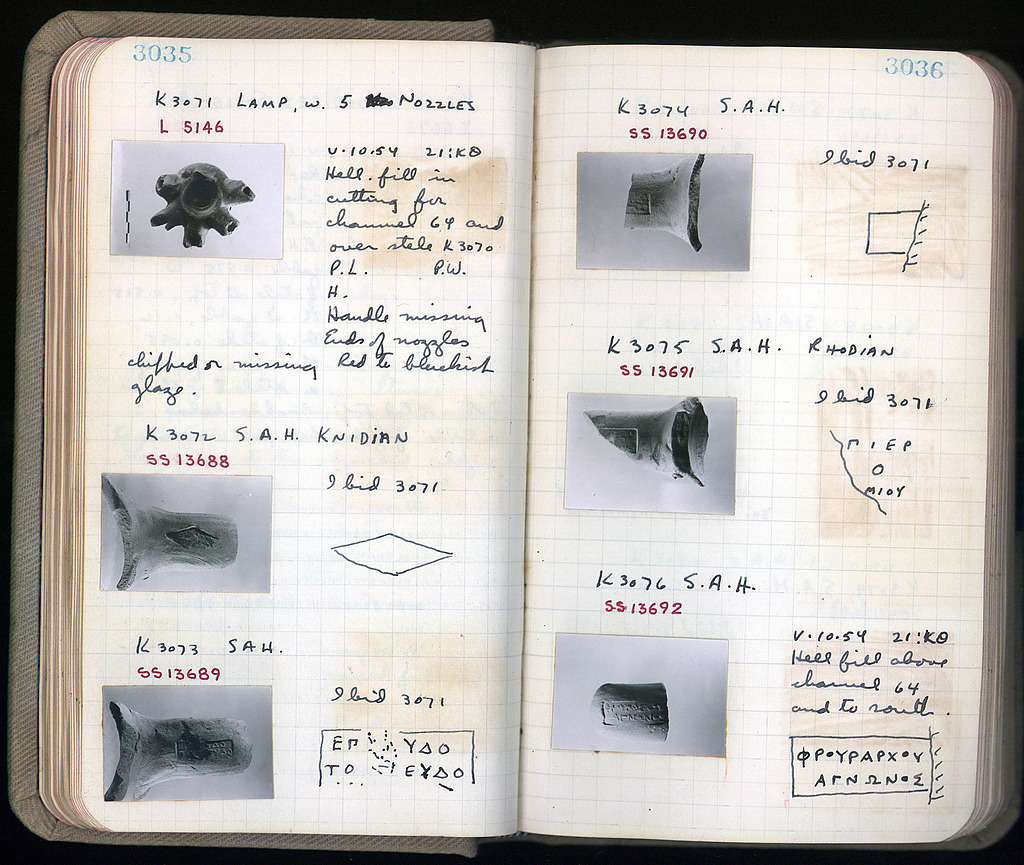 3035
K 3071 LAMP, W. 5 NOZZLES
L 5146
V.10.54 21:ΚΘ
Hell. fill in
cutting for
channel 64 and
over stele K 3070
P.L. P.W.
H.
Handle missing
Ends of nozzles
chipped or missing Red to blackish
glaze.
K 3072 S.A.H. KNIDIAN
SS 13688
Ibid 3071
K 3073 SAH.
SS 13689
Ibid 3071
ΕΠ ΥΔΟ
ΤΟ ΕΥΔΟ
3036
K 3074 S.A.H.
SS 13690
Ibid 3071
K 3075 S.A.H. RHODIAN
SS 13691
Ibid 3071
ΠΙΕΡ
Ο
ΜΙΟΥ
K 3076 S.A.H.
SS 13692
V.10.54 21:ΚΘ
Hell fill above
channel 64
and to south.
ΦΡΟΥΡΑΡΧΟΥ
ΑΓΝΩΝΟΣ